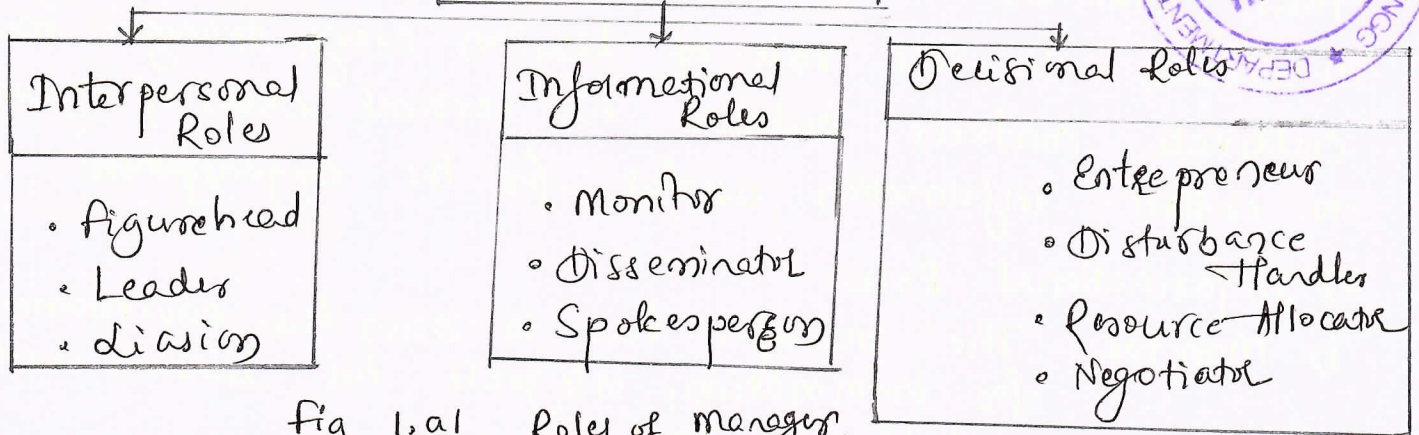 Interpersonal
Roles
• figurehead
• Leader
• Liasion
Informational
Roles
• Monitor
• Disseminator
• Spokesperson
Decisional Roles
• Entrepreneur
• Disturbance
Handler
• Resource Allocator
• Negotiator
fig 1.a1 Roles of manager
DEPARTMENT